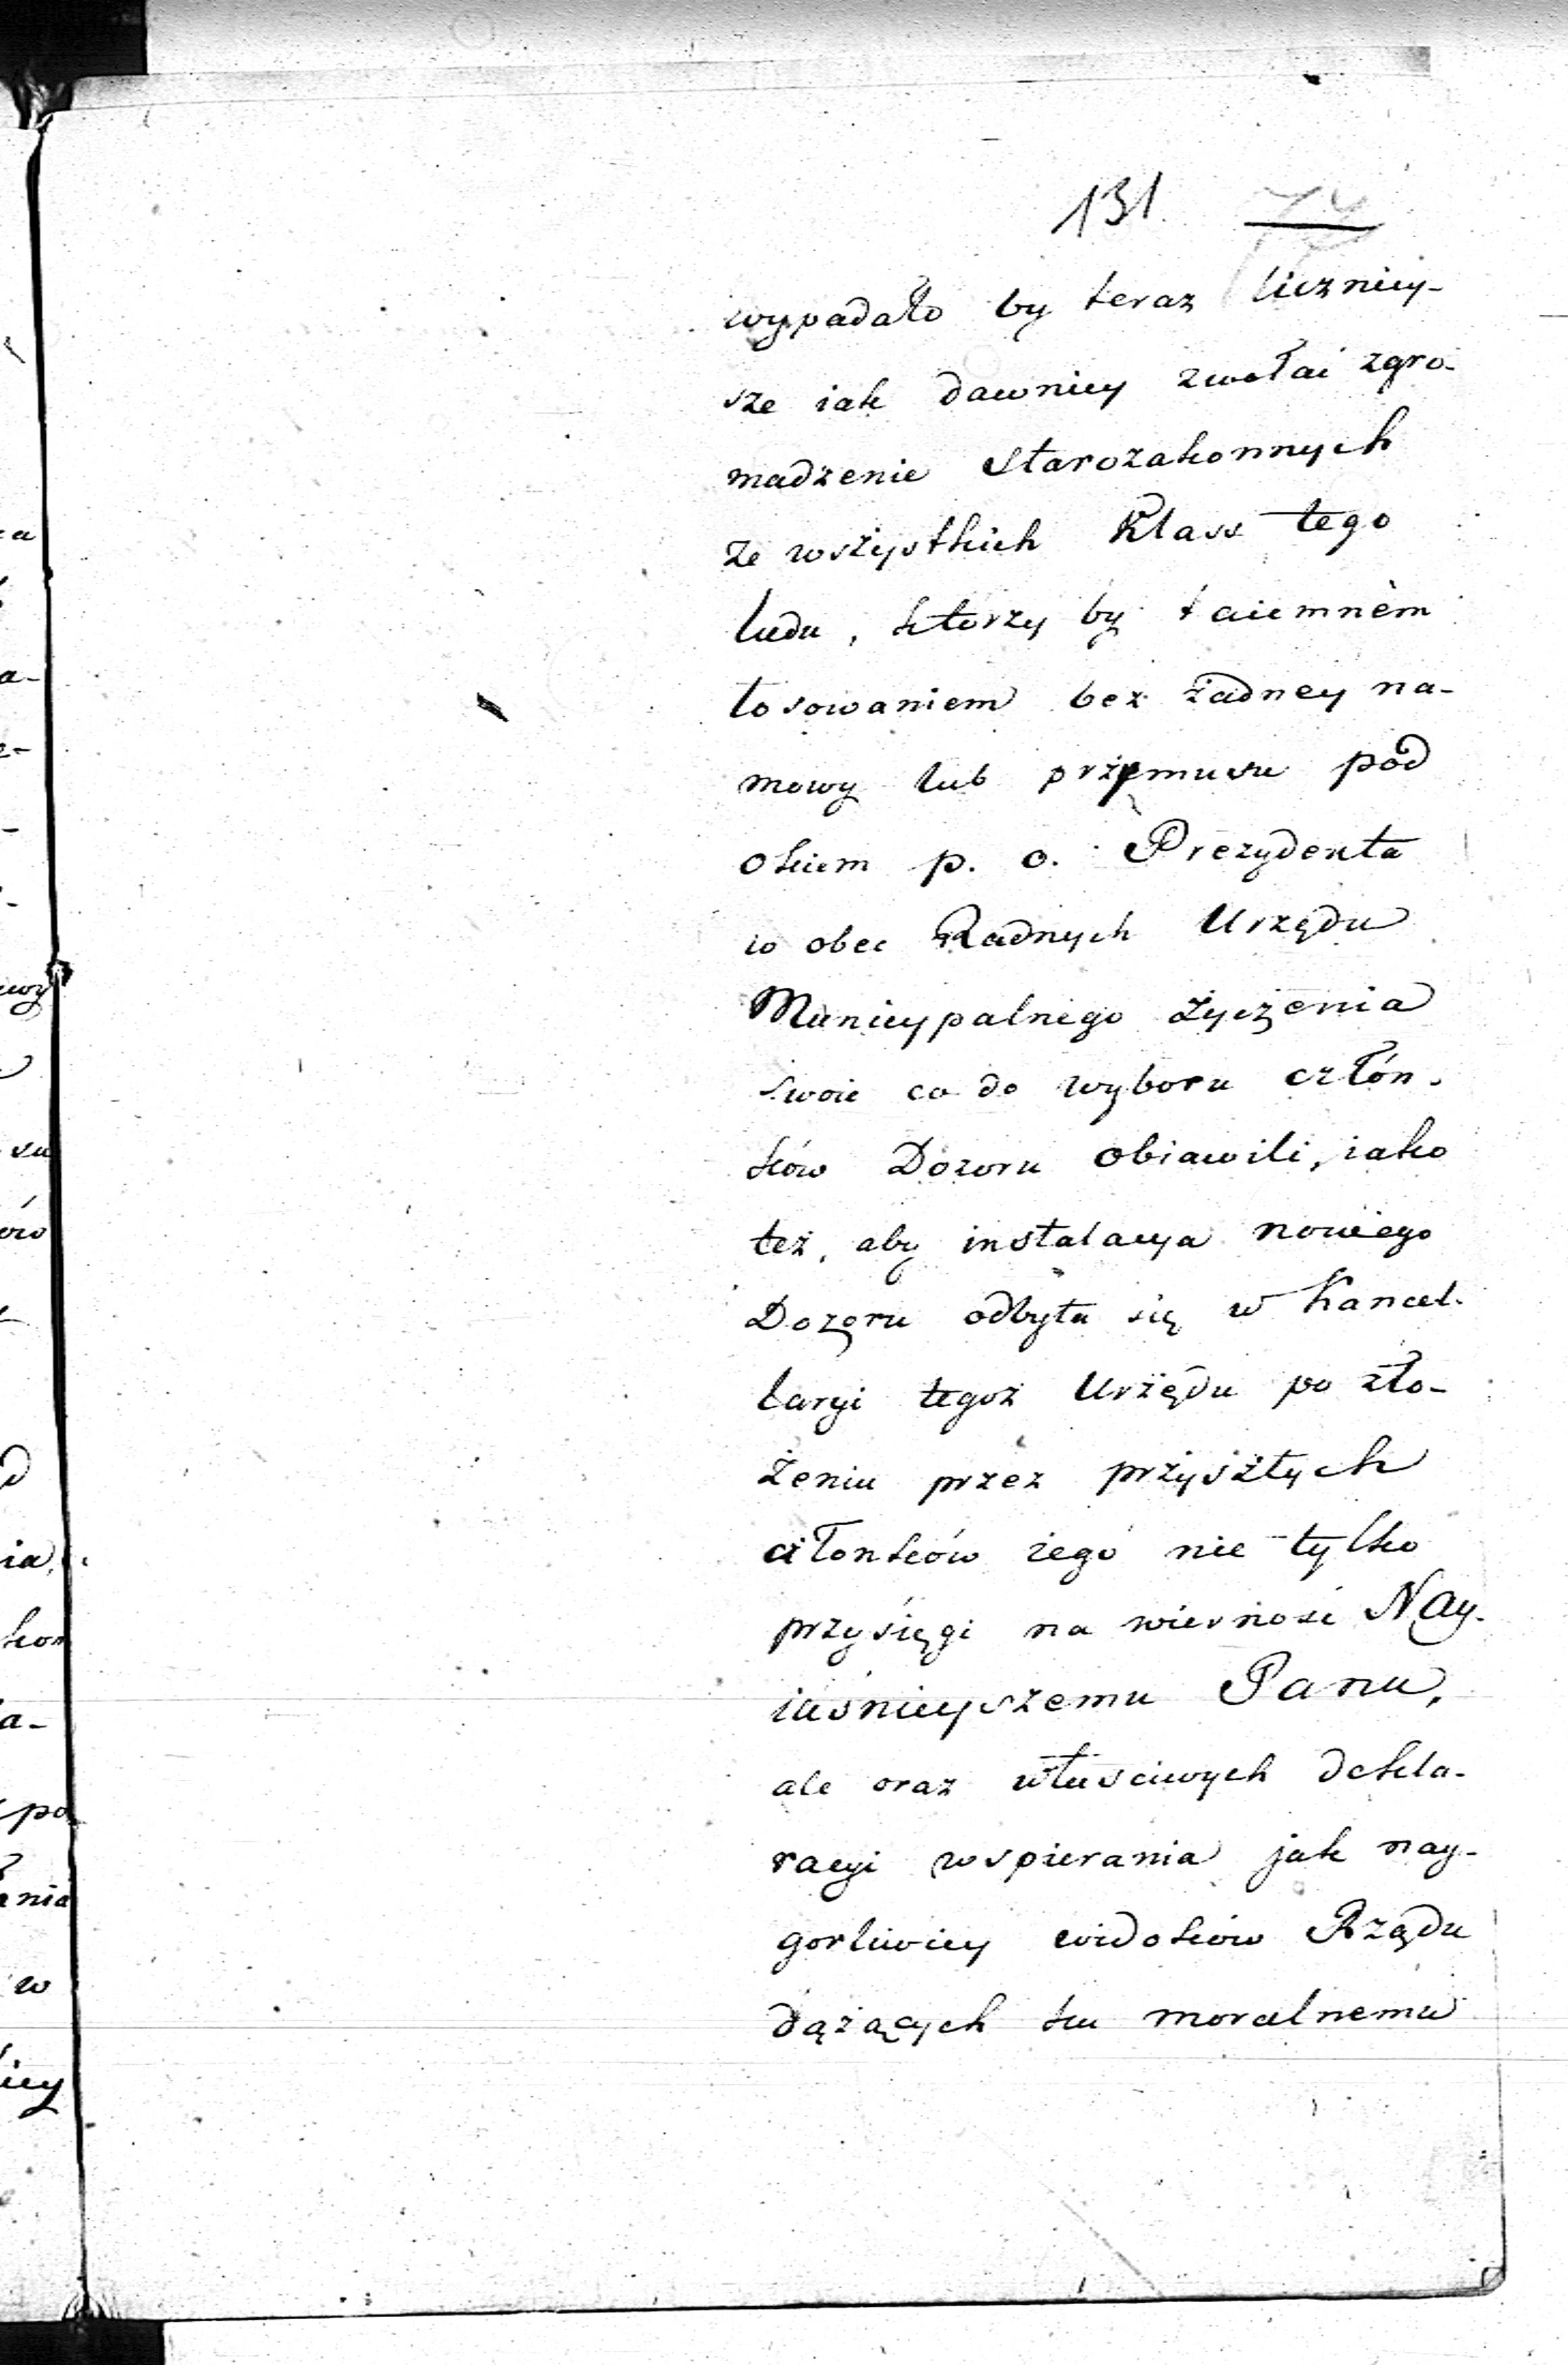 131.
wypadało by teraz liczniey-
sze iak dawniey zwołać zgro-
madzenie Starozakonnych
ze wszystkich Klass tego
ludu, którzy by taiemnèm
losowaniem bez żadney na-
mowy lub przymusu pod
okiem p. o. Prezydenta
w obec Radnych Urzędu
Municypalnego życzenia
swoie co do wyboru człón-
ków Dozoru obiawili, iako
też, aby instalacya nowego
Dozoru odbyła się w Kancel-
laryi tegoż Urzędu po zło-
żeniu przez przyszłych
członków iego nie tylko
przysięgi na wierność Nay-
iaśnieyszemu Panu,
ale oraz właściwych dekla-
racyi wspierania jak nay-
gorliwiey widoków Rządu
dążących ku moralnemu